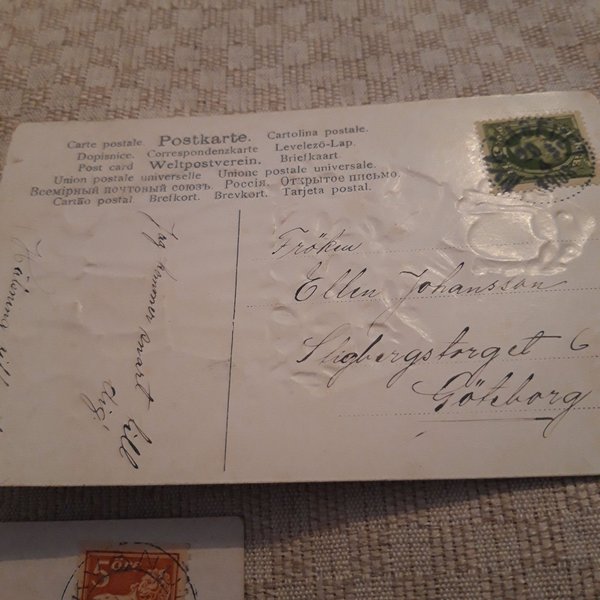 Carte postale Postkarte. Cartolina postale.
Dopisnice. Correspondenzkarte Levelező-Lap.
Post card Weltpostverein. Briefkaart.
Union postale universelle Unione postale universale.
Всемірный почтовый союзъ. Россія. Открытое письмо.
Cartão postal Brefkort. Brevkort. Tarjeta postal.
Fröken
Ellen Johansson
Stigbergstorget 6
Göteborg
Jag kommer snart till
dig
Hälsning till
5 ÖRE